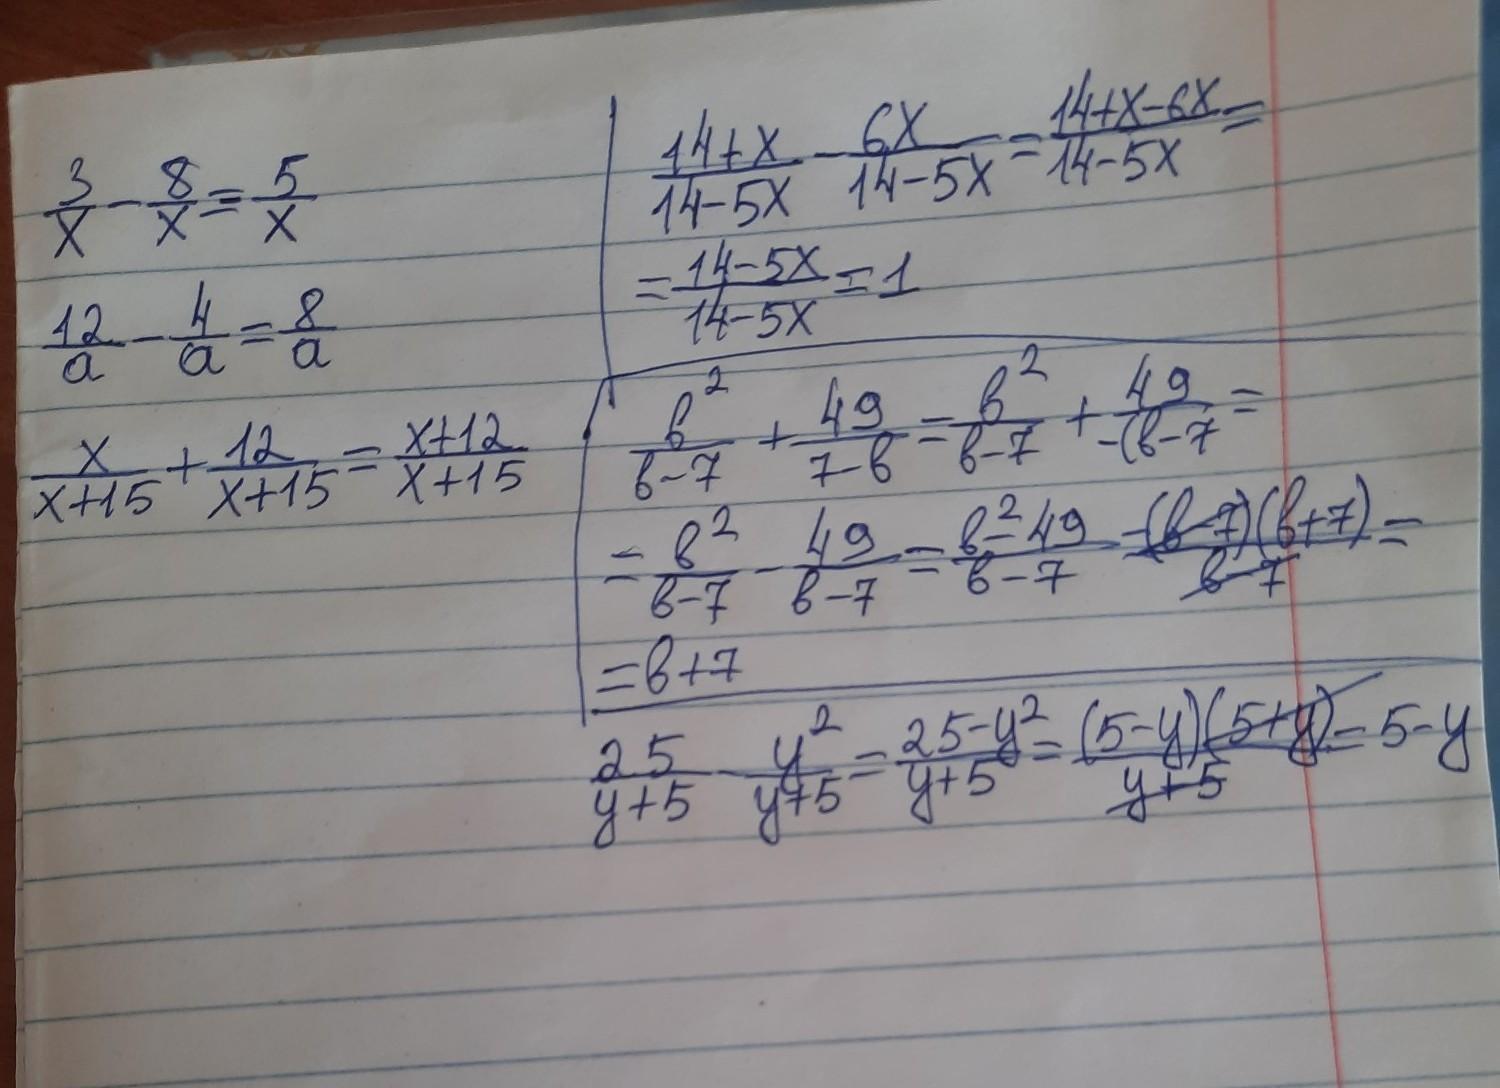 3/x - 8/x = 5/x
12/a - 4/a = 8/a
x/(x+15) + 12/(x+15) = (x+12)/(x+15)
(14+x)/(14-5x) - 6x/(14-5x) = (14+x-6x)/(14-5x) =
= (14-5x)/(14-5x) = 1
в²/(в-7) + 49/(7-в) = в²/(в-7) + 49/(-(в-7) =
= в²/(в-7) - 49/(в-7) = (в²-49)/(в-7) = (в-7)(в+7)/(в-7) =
= в+7
25/(y+5) - y²/(y+5) = (25-y²)/(y+5) = (5-y)(5+y)/(y+5) = 5-y